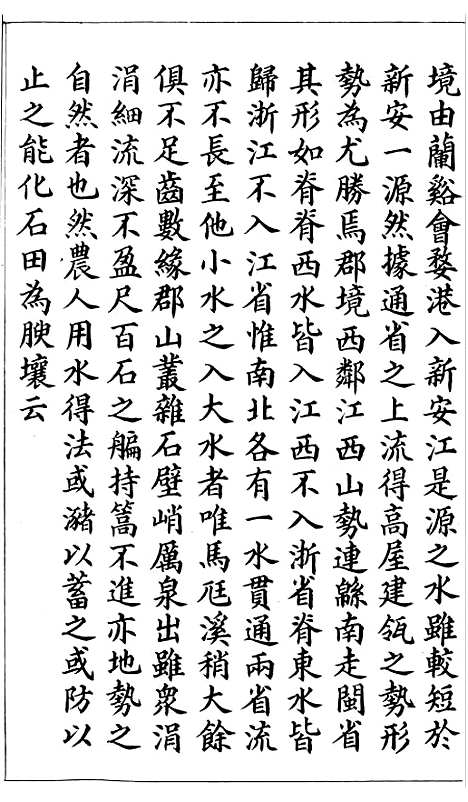 境由蘭谿會婺港入新安江是源之水雖較短於
新安一源然據通省之上流得高屋建瓴之勢形
勢為尤勝焉郡境西鄰江西山勢連緜南走閩省
其形如脊脊西水皆入江西不入浙省脊東水皆
歸浙江不入江省惟南北各有一水貫通兩省流
亦不長至他小水之入大水者唯馬尫溪稍大餘
俱不足齒數緣郡山叢雜石壁峭厲泉出雖衆涓
涓細流深不盈尺百石之艑持篙不進亦地勢之
自然者也然農人用水得法或瀦以蓄之或防以
止之能化石田為腴壤云